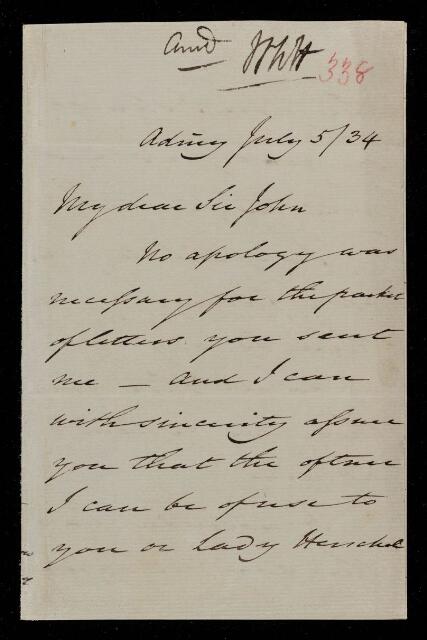 Ansd
338
Admy July 5/34
My dear Sir John
No apology was
necessary for the packet
of letters you sent
me – and I can
with sincerity assure
you that the oftner
I can be of use to
you or Lady Herschel